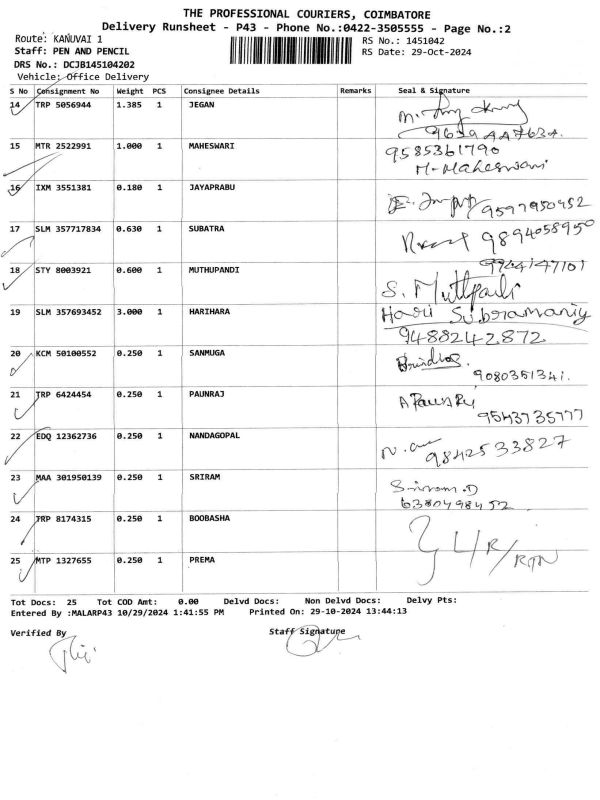 THE PROFESSIONAL COURIERS, COIMBATORE
Delivery Runsheet - P43 - Phone No.:0422-3505555 - Page No.:2
Route: KANUVAI 1
RS No.: 1451042
Staff: PEN AND PENCIL
RS Date: 29-Oct-2024
DRS No.: DCJB145104202
Vehicle: Office Delivery
S No Consignment No Weight PCS Consignee Details Remarks Seal & Signature
14 TRP 5056944 1.385 1 JEGAN
15 MTR 2522991 1.000 1 MAHESWARI 9585361790
M. Maheswari
16 IXM 3551381 0.180 1 JAYAPRABU 9597950452
17 SLM 357717834 0.630 1 SUBATRA 9894058950
18 STY 8003921 0.600 1 MUTHUPANDI 9944147101
S.
19 SLM 357693452 3.000 1 HARIHARA Hari Subramaniy
9488242872
20 KCM 50100552 0.250 1 SANMUGA
9080351341.
21 TRP 6424454 0.250 1 PAUNRAJ
9543735777
22 EDQ 12362736 0.250 1 NANDAGOPAL 9842533827
23 MAA 301950139 0.250 1 SRIRAM Sriram.D
6380498452
24 TRP 8174315 0.250 1 BOOBASHA
R/RTN
25 MTP 1327655 0.250 1 PREMA
Tot Docs: 25 Tot COD Amt: 0.00 Delvd Docs: Non Delvd Docs: Delvy Pts:
Entered By :MALARP43 10/29/2024 1:41:55 PM Printed On: 29-10-2024 13:44:13
Verified By Staff Signature